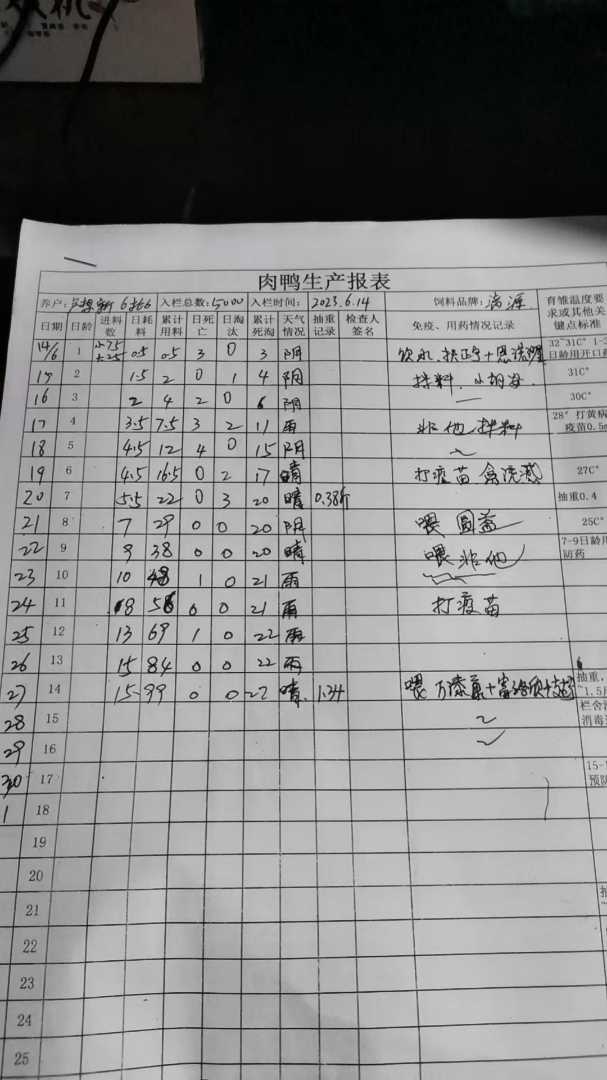 肉鸭生产报表
养户: 入栏总数:5000 入栏时间: 2023.6.14 饲料品牌: 育雏温度要求或其他关键点标准
日期 日龄 进料数 日耗料 累计用料 日死亡 日淘汰 累计死淘 天气情况 抽重记录 检查人签名 免疫、用药情况记录
14/6 1 0.5 0.5 3 0 3 阴 饮水 32~31C° 1- 日龄用开口
15 2 1.5 2 0 1 4 阴 拌料 31C°
16 3 2 4 2 0 6 阴 30C°
17 4 3.5 7.5 3 2 11 雨 非他拌料 28° 打黄病疫苗0.5
18 5 4.5 12 4 0 15 阴
19 6 4.5 16.5 0 2 17 晴 打疫苗 27C°
20 7 5.5 22 0 3 20 晴 0.38斤 抽重0.4
21 8 7 29 0 0 20 阴 喂 圆蓝 25C°
22 9 9 38 0 0 20 晴 喂 非他 7-9日龄用防药
23 10 10 48 1 0 21 雨
24 11 8 56 0 0 21 雨 打疫苗
25 12 13 69 1 0 22 雨
26 13 15 84 0 0 22 雨
27 14 15 99 0 0 22 晴 1.34 喂 抽重,
28 15 ~1.5 栏舍 消毒
29 16
30 17 15- 预防
1 18
19
20
21
22
23
24
25